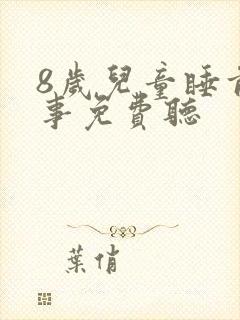 8歲兒童睡前
事免費聽
葉俏